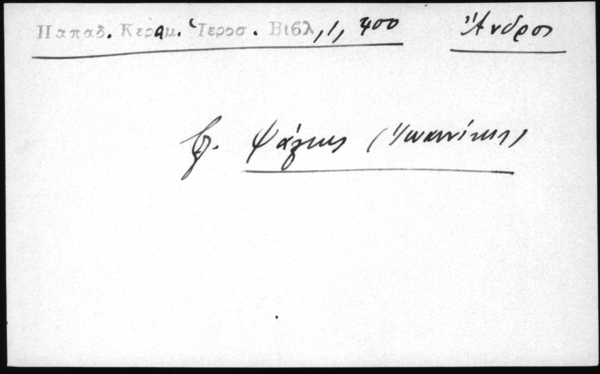 Παπαδ. Κεραμ. Ἱεροσ. Βιβλ, 1, 400 Ἄνδρος
βλ. Ψάλτης (Ἰωαννίκης)